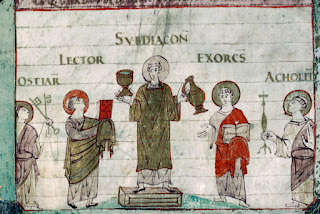 SVBDIACON
LECTOR EXORCS
OSTIAR ACHOLIT